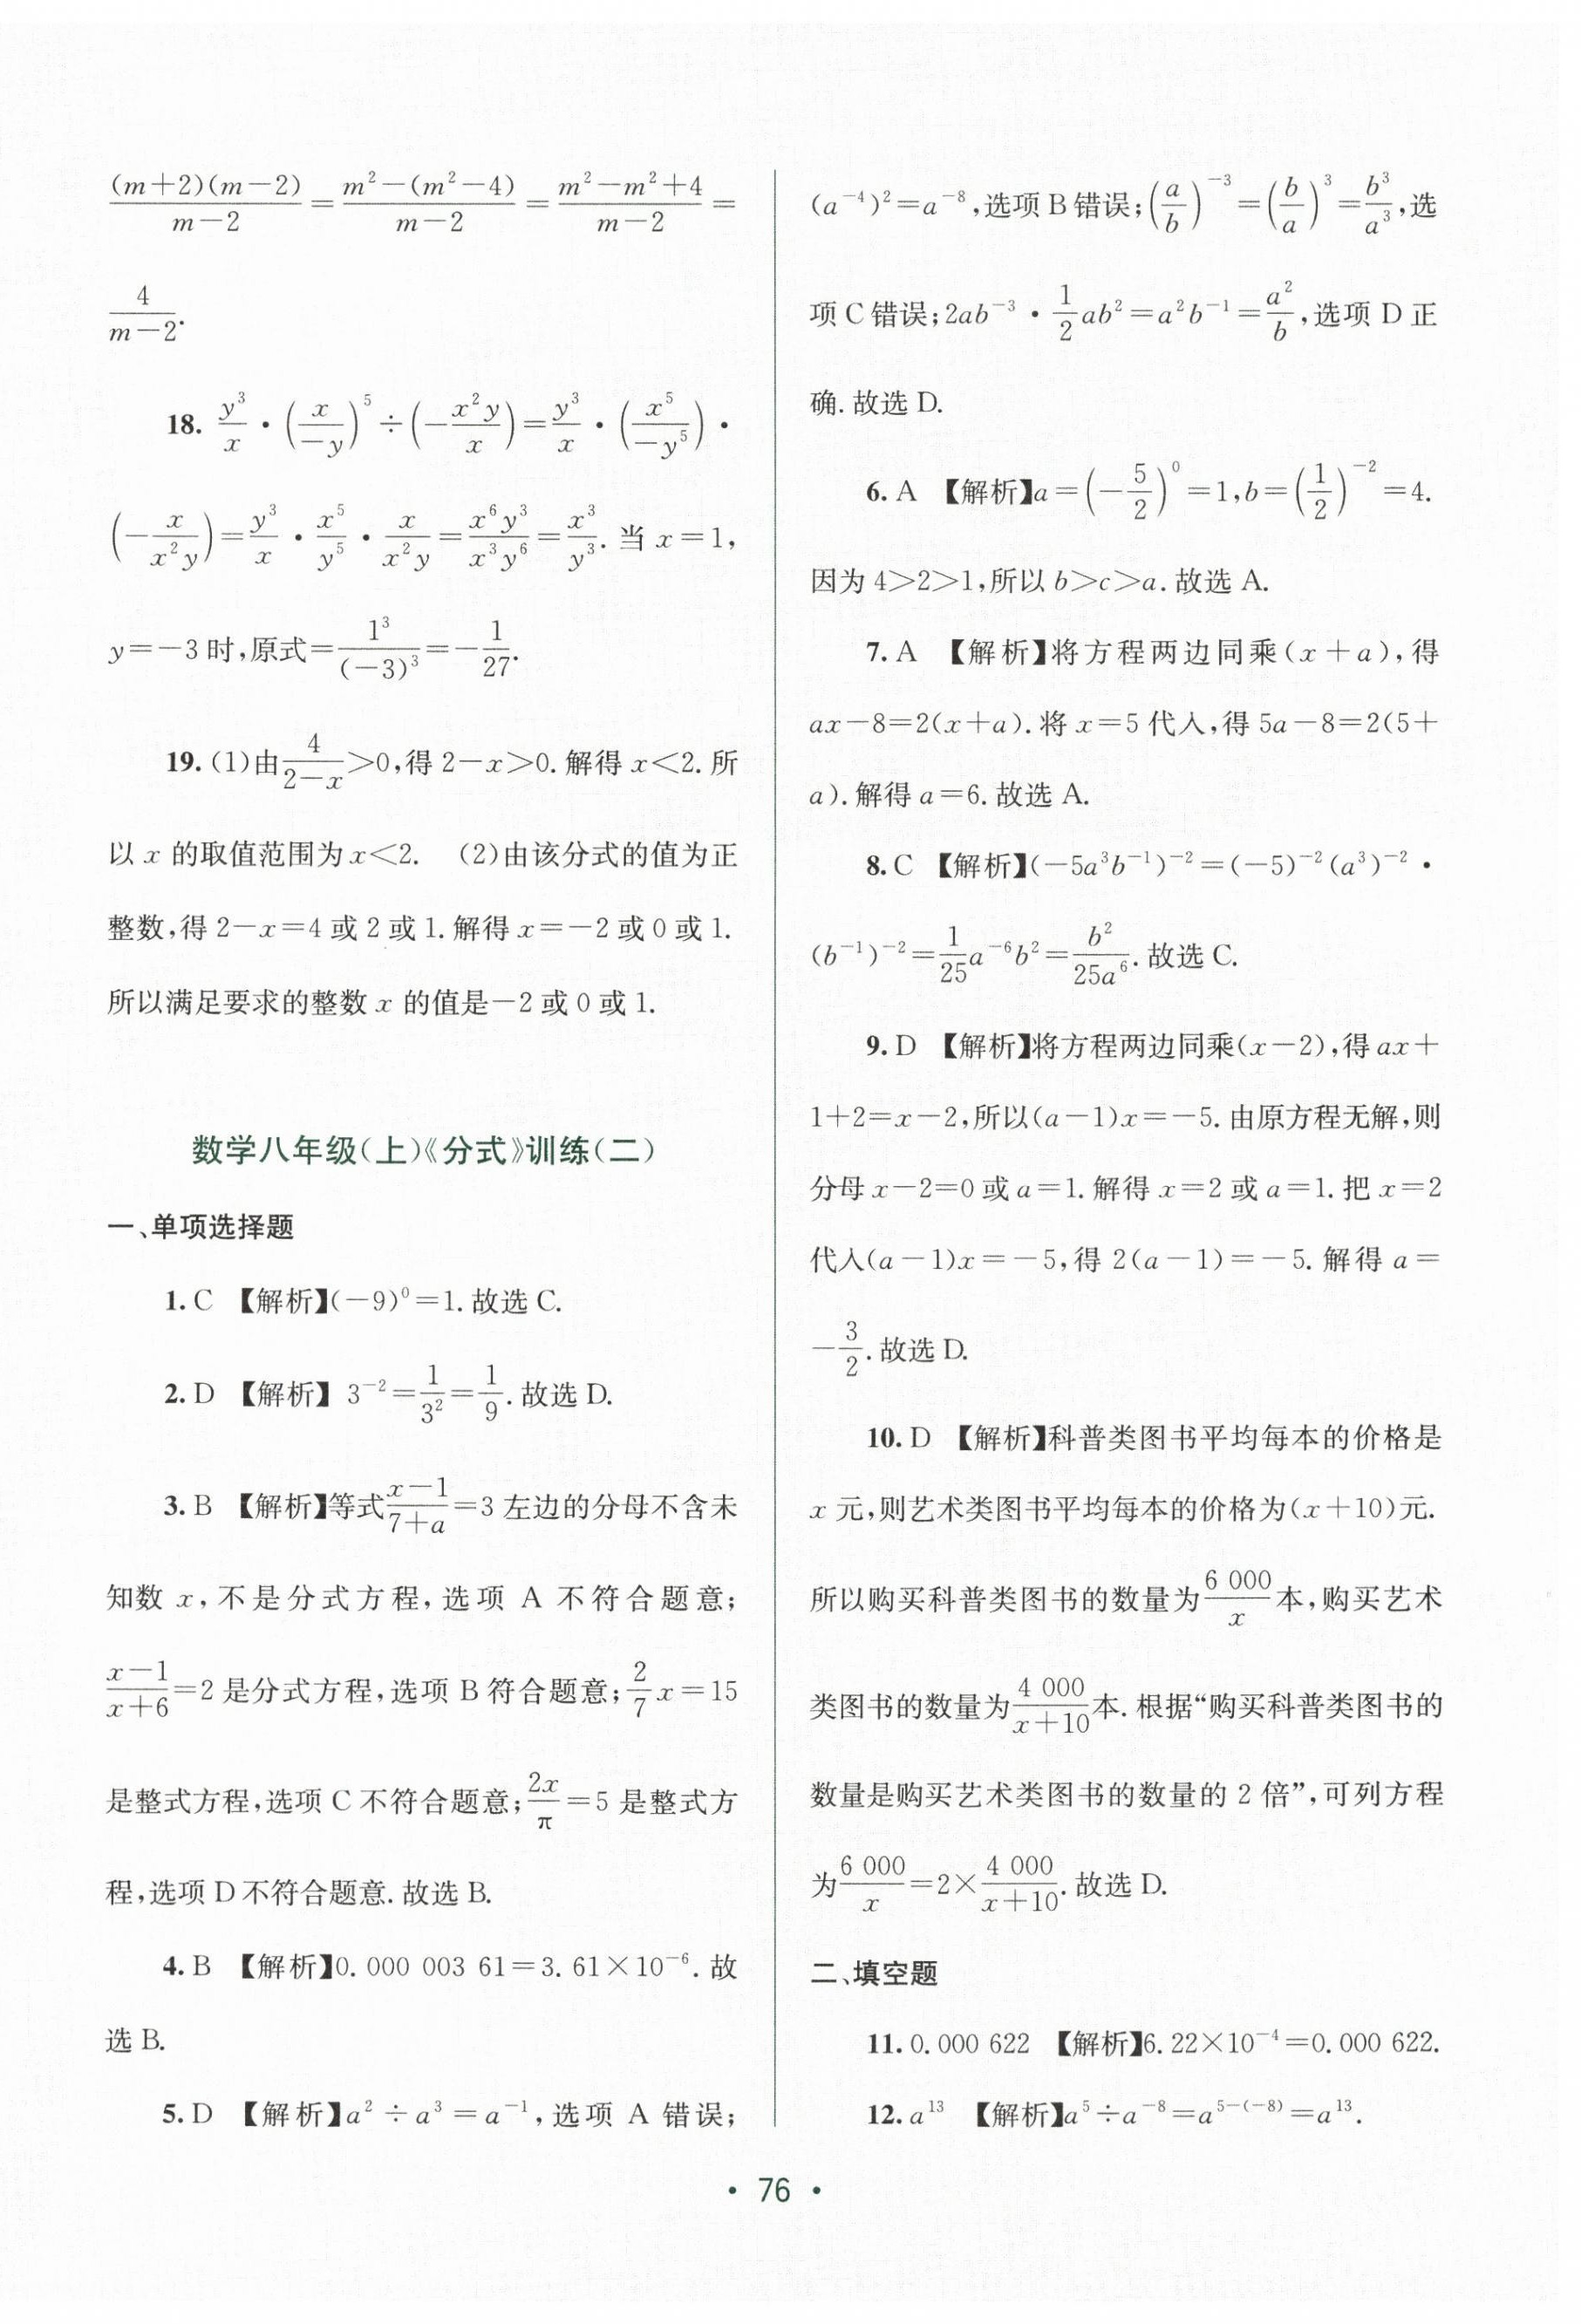 (m+2)(m-2)/(m-2)=(m²-(m²-4))/(m-2)=(m²-m²+4)/(m-2)=
4/(m-2).
18. y³/x·(x/(-y))⁵÷(-x²y/x)=y³/x·(x⁵/(-y⁵))·
(-x/(x²y))=y³/x·x⁵/y⁵·x/(x²y)=x⁶y³/(x³y⁶)=x³/y³.当 x=1,
y=-3时,原式=1³/(-3)³=-1/27.
19.(1)由4/(2-x)>0,得2-x>0.解得x<2.所
以 x 的取值范围为x<2. (2)由该分式的值为正
整数,得2-x=4或2或1.解得x=-2或0或1.
所以满足要求的整数 x 的值是-2或0或1.
数学八年级(上)《分式》训练(二)
一、单项选择题
1.C 【解析】(-9)⁰=1.故选C.
2.D 【解析】3⁻²=1/3²=1/9.故选D.
3.B 【解析】等式(x-1)/(7+a)=3左边的分母不含未
知数 x,不是分式方程,选项 A 不符合题意;
(x-1)/(x+6)=2是分式方程,选项B符合题意;2/7 x=15
是整式方程,选项C不符合题意;2x/π=5是整式方
程,选项D不符合题意.故选B.
4.B 【解析】0.000 003 61=3.61×10⁻⁶.故
选B.
5.D 【解析】a²÷a³=a⁻¹,选项 A 错误;
(a⁻⁴)²=a⁻⁸,选项B错误;(a/b)⁻³=(b/a)³=b³/a³,选
项C错误;2ab⁻³·1/2ab²=a²b⁻¹=a²/b,选项D正
确.故选D.
6.A 【解析】a=(-5/2)⁰=1,b=(1/2)⁻²=4.
因为4>2>1,所以b>c>a.故选A.
7.A 【解析】将方程两边同乘(x+a),得
ax-8=2(x+a).将x=5代入,得5a-8=2(5+
a).解得a=6.故选A.
8.C 【解析】(-5a³b⁻¹)⁻²=(-5)⁻²(a³)⁻²·
(b⁻¹)⁻²=1/25a⁻⁶b²=b²/(25a⁶).故选C.
9.D 【解析】将方程两边同乘(x-2),得ax+
1+2=x-2,所以(a-1)x=-5.由原方程无解,则
分母x-2=0或a=1.解得x=2或a=1.把x=2
代入(a-1)x=-5,得2(a-1)=-5.解得a=
-3/2.故选D.
10.D 【解析】科普类图书平均每本的价格是
x元,则艺术类图书平均每本的价格为(x+10)元.
所以购买科普类图书的数量为6 000/x本,购买艺术
类图书的数量为4 000/(x+10)本.根据“购买科普类图书的
数量是购买艺术类图书的数量的2倍”,可列方程
为6 000/x=2×4 000/(x+10).故选D.
二、填空题
11.0.000 622 【解析】6.22×10⁻⁴=0.000 622.
12.a¹³ 【解析】a⁵÷a⁻⁸=a⁵⁻⁽⁻⁸⁾=a¹³.
· 76 ·